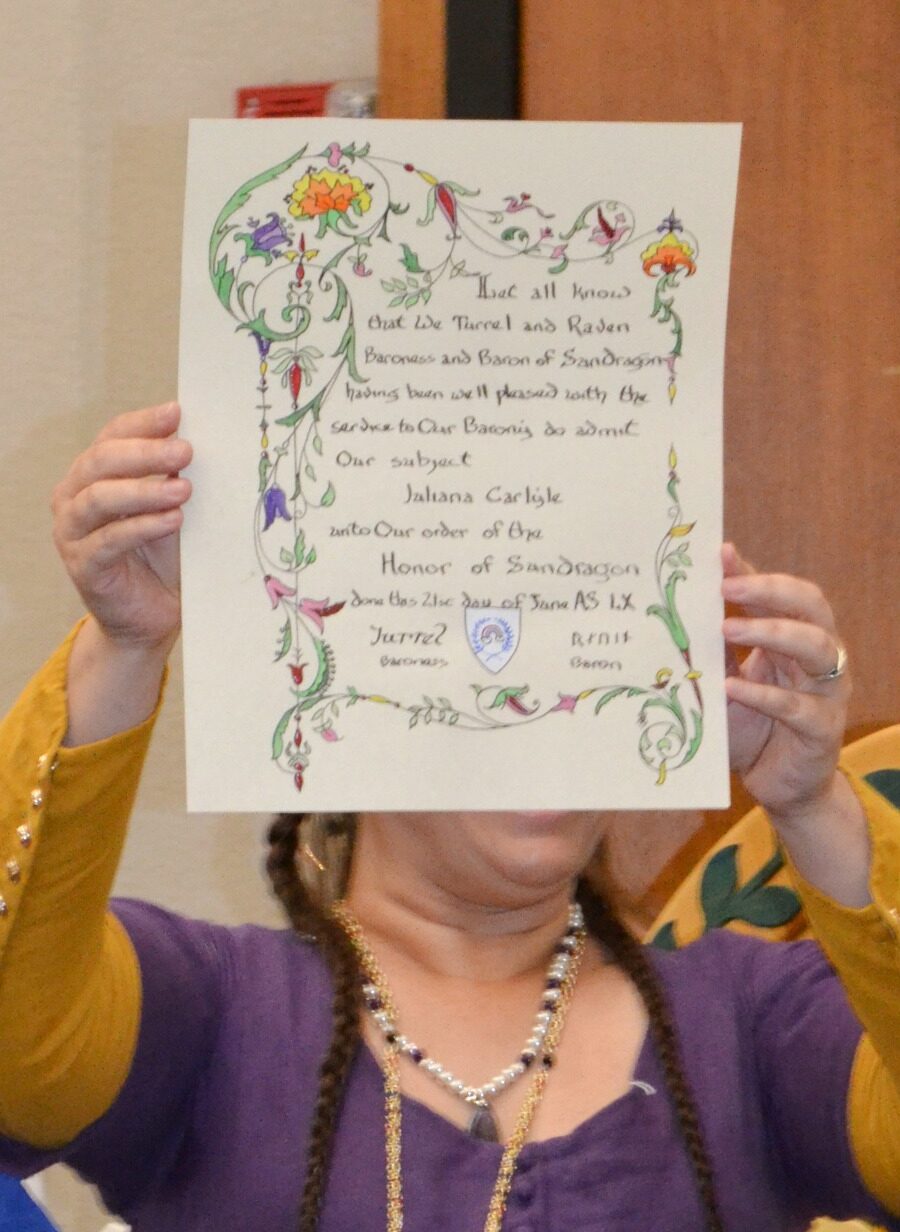 Let all know
that We Turrel and Raven
Baroness and Baron of Sandragon
having been well pleased with the
service to Our Barony do admit
Our subject
Juliana Carlyle
unto Our order of the
Honor of Sandragon
done this 21st day of June AS LX
Turrel
Baroness
Baron